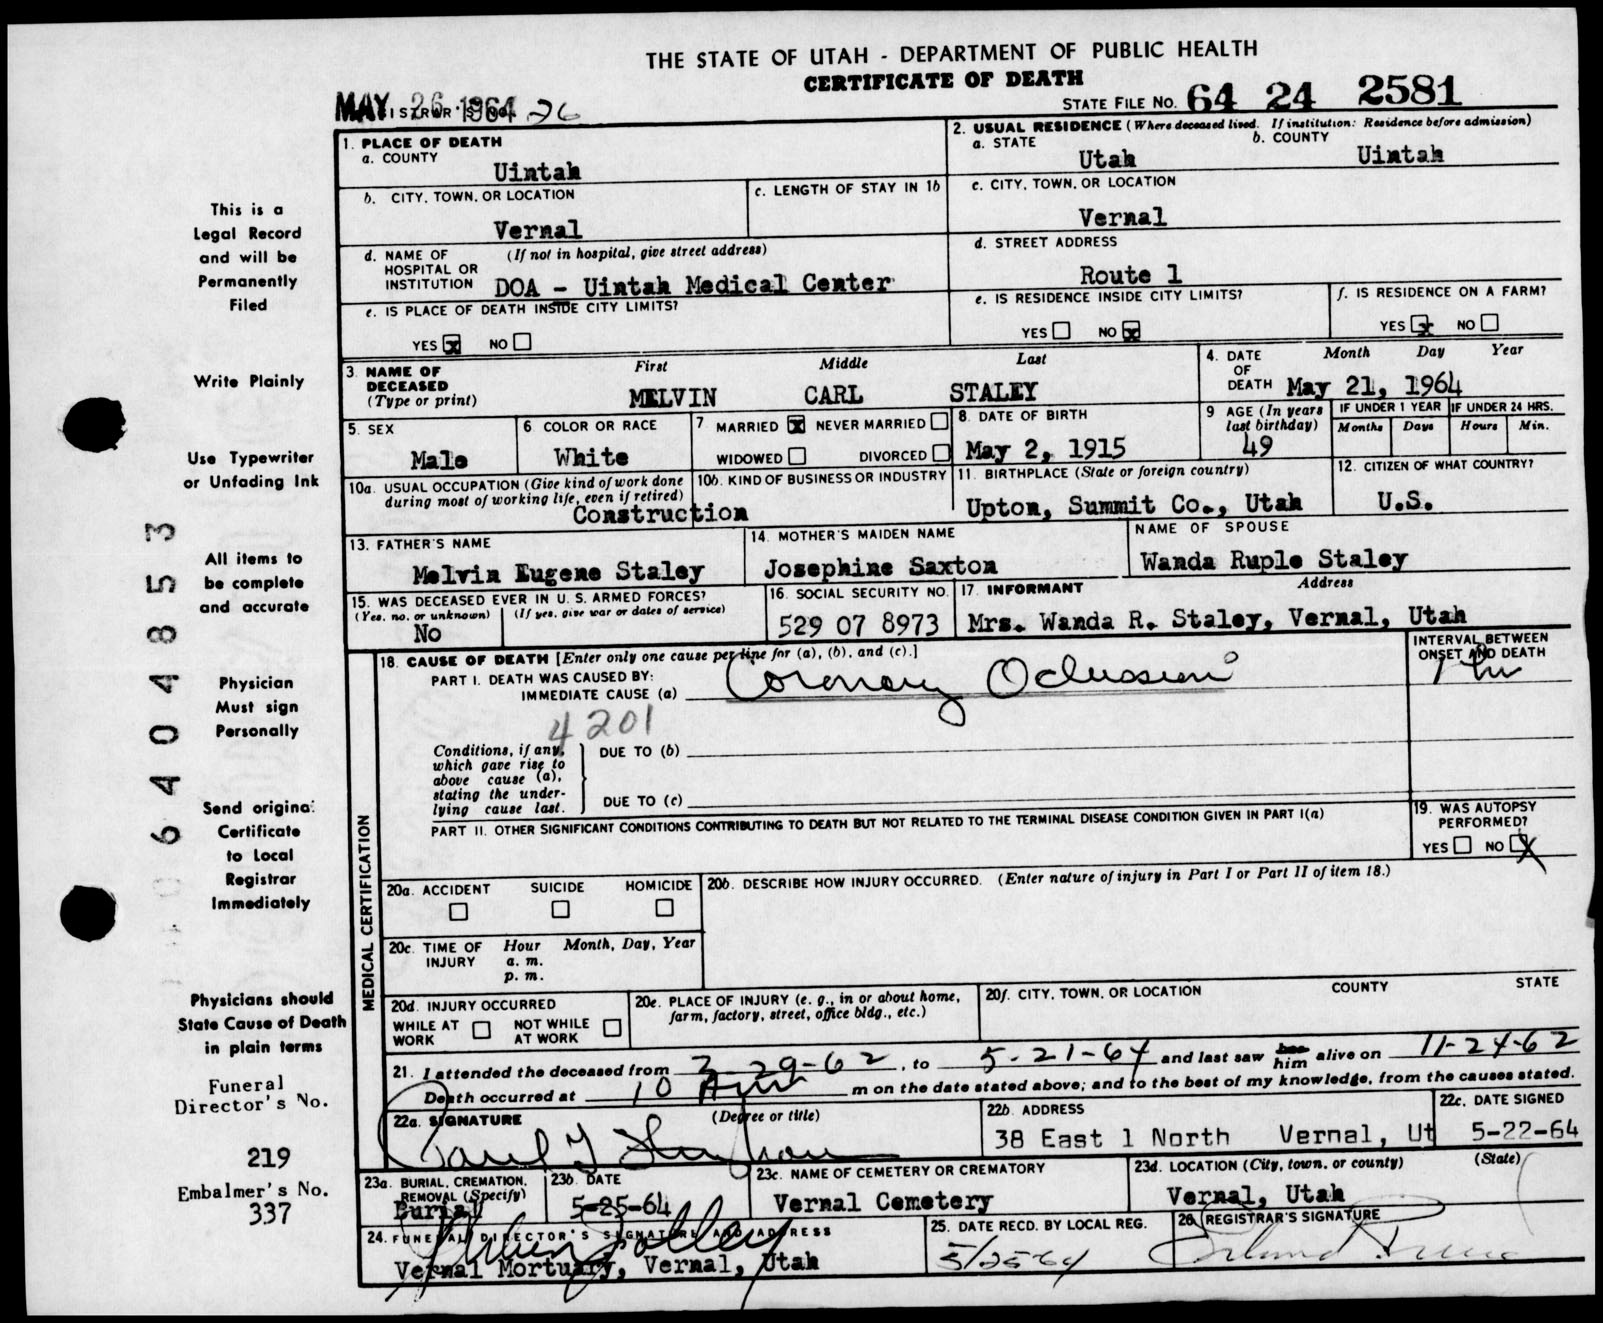 THE STATE OF UTAH - DEPARTMENT OF PUBLIC HEALTH
CERTIFICATE OF DEATH
MAY 26 1964 26
STATE FILE NO. 64 24 2581
1. PLACE OF DEATH
a. COUNTY
Uintah
2. USUAL RESIDENCE (Where deceased lived. If institution: Residence before admission)
a. STATE b. COUNTY
Utah Uintah
b. CITY, TOWN, OR LOCATION
Vernal
c. LENGTH OF STAY IN 1b
c. CITY, TOWN, OR LOCATION
Vernal
d. NAME OF HOSPITAL OR INSTITUTION (If not in hospital, give street address)
DOA - Uintah Medical Center
d. STREET ADDRESS
Route 1
e. IS PLACE OF DEATH INSIDE CITY LIMITS?
YES x NO
e. IS RESIDENCE INSIDE CITY LIMITS?
YES NO x
f. IS RESIDENCE ON A FARM?
YES x NO
3. NAME OF DECEASED (Type or print)
First Middle Last
MELVIN CARL STALEY
4. DATE OF DEATH
Month Day Year
May 21, 1964
5. SEX
Male
6 COLOR OR RACE
White
7 MARRIED x NEVER MARRIED
WIDOWED DIVORCED
8. DATE OF BIRTH
May 2, 1915
9 AGE (In years last birthday)
49
IF UNDER 1 YEAR
Months Days
IF UNDER 24 HRS.
Hours Min.
10a. USUAL OCCUPATION (Give kind of work done during most of working life, even if retired)
Construction
10b. KIND OF BUSINESS OR INDUSTRY
11. BIRTHPLACE (State or foreign country)
Upton, Summit Co., Utah
12. CITIZEN OF WHAT COUNTRY?
U.S.
13. FATHER'S NAME
Melvin Eugene Staley
14. MOTHER'S MAIDEN NAME
Josephine Saxton
NAME OF SPOUSE
Wanda Ruple Staley
15. WAS DECEASED EVER IN U. S. ARMED FORCES?
(Yes, no, or unknown) (If yes, give war or dates of service)
No
16. SOCIAL SECURITY NO.
529 07 8973
17. INFORMANT Address
Mrs. Wanda R. Staley, Vernal, Utah
18. CAUSE OF DEATH [Enter only one cause per line for (a), (b), and (c).]
INTERVAL BETWEEN ONSET AND DEATH
PART I. DEATH WAS CAUSED BY:
IMMEDIATE CAUSE (a) Coronary Oclussion
1 hr
4201
Conditions, if any, which gave rise to above cause (a), stating the underlying cause last.
DUE TO (b)
DUE TO (c)
PART II. OTHER SIGNIFICANT CONDITIONS CONTRIBUTING TO DEATH BUT NOT RELATED TO THE TERMINAL DISEASE CONDITION GIVEN IN PART I(a)
19. WAS AUTOPSY PERFORMED?
YES NO X
MEDICAL CERTIFICATION
20a. ACCIDENT SUICIDE HOMICIDE
20b. DESCRIBE HOW INJURY OCCURRED. (Enter nature of injury in Part I or Part II of item 18.)
20c. TIME OF INJURY Hour Month, Day, Year
a. m.
p. m.
20d. INJURY OCCURRED
WHILE AT WORK NOT WHILE AT WORK
20e. PLACE OF INJURY (e. g., in or about home, farm, factory, street, office bldg., etc.)
20f. CITY, TOWN, OR LOCATION COUNTY STATE
21. I attended the deceased from -29-62, to 5-21-64 and last saw her him alive on 11-24-62
Death occurred at 10 A m on the date stated above; and to the best of my knowledge, from the causes stated.
22a. SIGNATURE (Degree or title)
22b. ADDRESS
38 East 1 North Vernal, Ut
22c. DATE SIGNED
5-22-64
23a. BURIAL, CREMATION, REMOVAL (Specify)
Burial
23b. DATE
5-25-64
23c. NAME OF CEMETERY OR CREMATORY
Vernal Cemetery
23d. LOCATION (City, town, or county) (State)
Vernal, Utah
24. FUNERAL DIRECTOR'S SIGNATURE AND ADDRESS
Vernal Mortuary, Vernal, Utah
25. DATE RECD. BY LOCAL REG.
5/25-64
26. REGISTRAR'S SIGNATURE
This is a
Legal Record
and will be
Permanently
Filed
Write Plainly
Use Typewriter
or Unfading Ink
All items to
be complete
and accurate
Physician
Must sign
Personally
Send original
Certificate
to Local
Registrar
Immediately
Physicians should
State Cause of Death
in plain terms
Funeral
Director's No.
219
Embalmer's No.
337
06404853